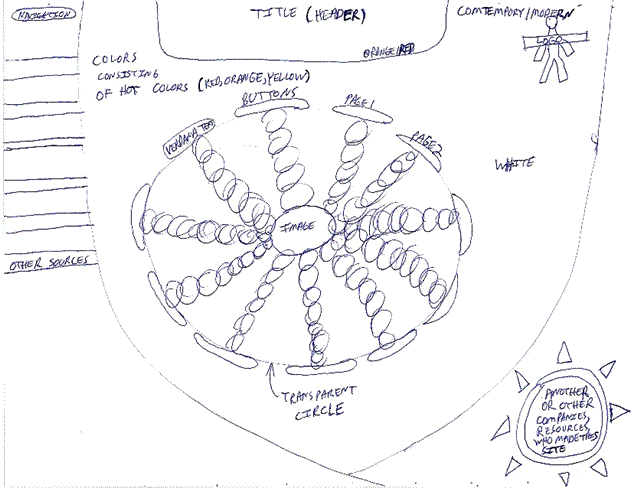 NAVIGATION
TITLE (HEADER)
ORANGE/RED
COMTEMPORY/MODERN
LOGO
COLORS
CONSISTING
OF HOT COLORS (RED, ORANGE, YELLOW)
BUTTONS
PAGE 1
PAGE 2
VERDANA TEXT
WHITE
IMAGE
OTHER SOURCES
TRANSPARENT
CIRCLE
ANOTHER
OR OTHER
COMPANIES,
RESOURCES,
WHO MADE THIS
SITE